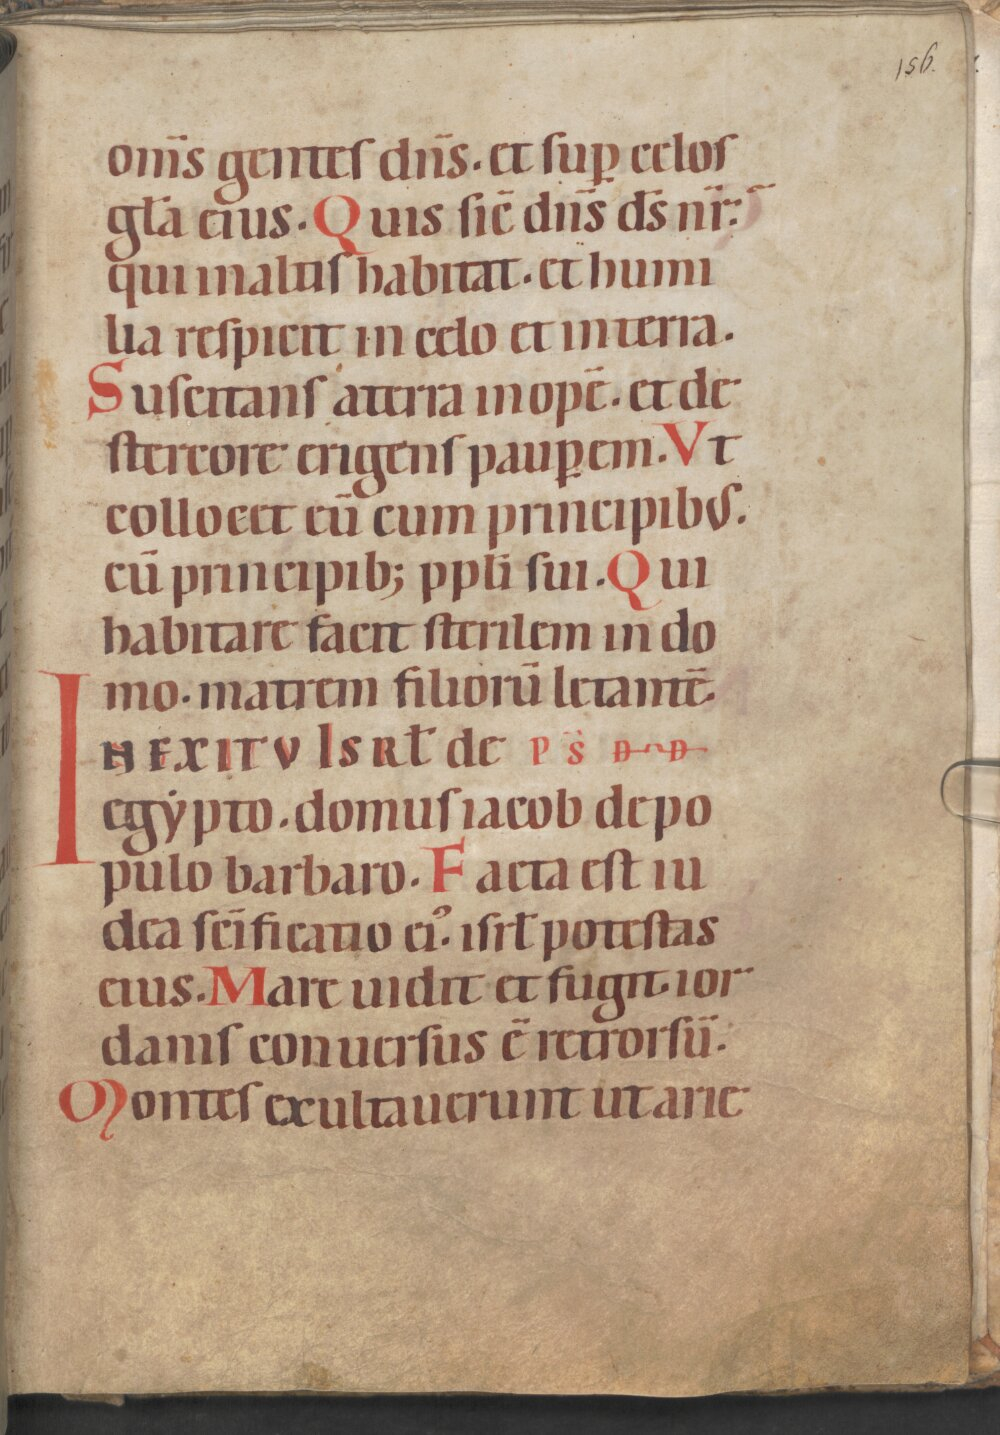 156.
om̅s gentes dn̅s. et sup̲ celos
gl̅a eius. Quis sic̅ dn̅s ds̅ nr̅:
qui in altis habitat. et humi
lia respicit in celo et in terra.
Suscitans a terra inope̅. et de
stercore erigens paup̲em. Vt
collocet eu̅ cum principibus.
cu̅ principib; ppl̅i sui. Qui
habitare facit sterilem in do
mo. matrem filioru̅ letante̅.
IN EXITV Isrl̅ de PS̅ DD
egẏpto. domus iacob de po
pulo barbaro. Facta est iu
dea sc̅ificatio ei᾽. isrl̅ potestas
eius. Mare uidit et fugit. ior
danis conuersus e̅ retrorsu̅.
Montes exultauerunt ut arie